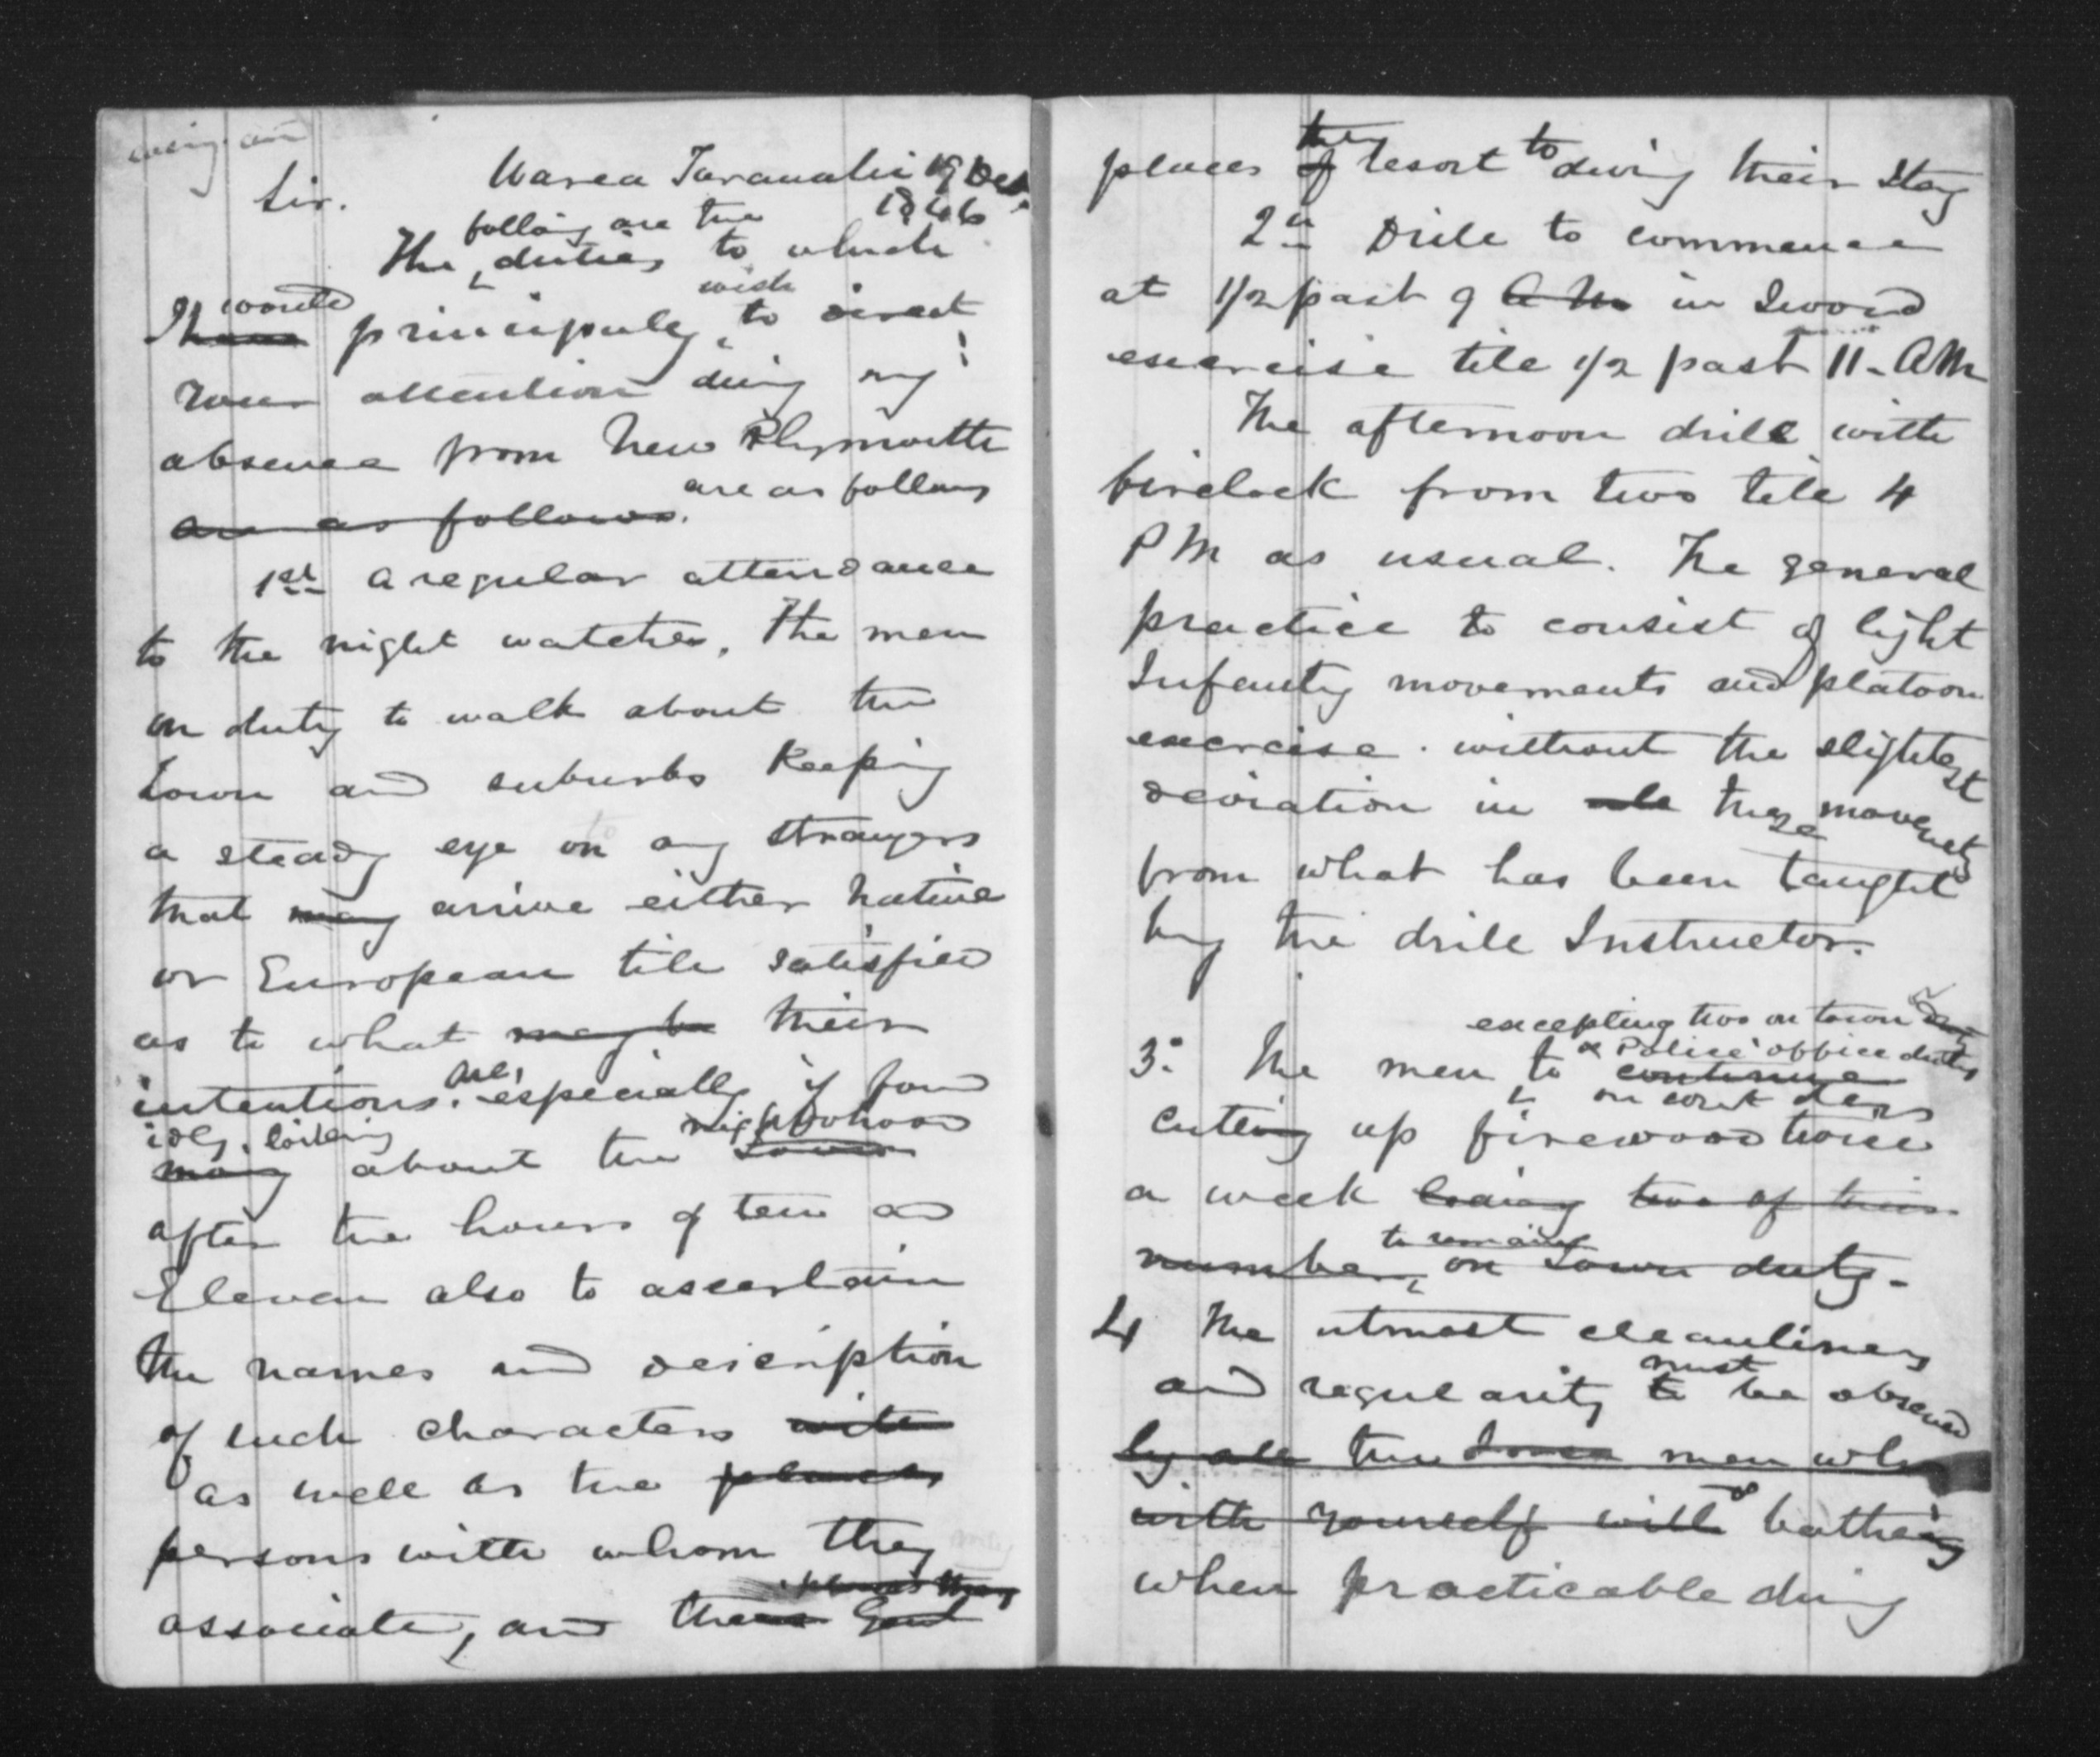 Sir. Warea Taranaki 19 Dec
1846
folloing are the
The duties to which
would wish
I have principaly to direct
your attention duing my
absence from New Plymouth
are as follows
are as follows.
1st A regular attendance
to the night watches, The men
on duty to walk about the
town and suburbs Keeping
a steady eye on any strangers
that may arrive either Native
or European till satisfied
as to what may be their
are,
intentions. especially if found
idly loitering neighbohood
may about the town
after the hours of ten and
Eleven also to ascertain
the names and description
of such characters with
as well as the places
persons with whom they
places they
associate, and their
they to
places of resort duing their stay
2d Drill to commence
at 1/2 past 9 A M in Sword
exercise till 1/2 past 11 - AM
The afternoon drill with
firelock from two till 4
PM as usual. The general
practice to consist of light
Infantry movements and platoon
exercise. without the slightest
deviation in these movements
from what has been taught
by the drill Instructor.
excepting two on town duty
& Police office duties
3d The men to continue
on court days
cuting up firewood twice
a week leaving two of their
to remain
number, on Town duty -
4 The utmost cleanliness
must
and regularity to be observed
by all the men who
with yourself will batheing
when practicable duing